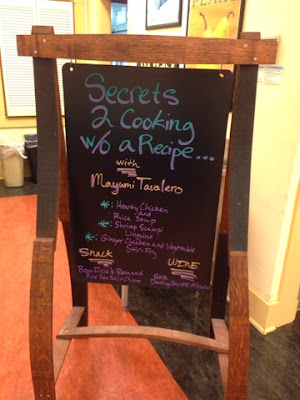 Secrets
2 Cooking
w/o a Recipe...
with
Mayumi Tavalero
*: Hearty Chicken
and
Rice Soup
*: Shrimp Scampi
Linguine
*: Ginger Chicken and Vegetable
Stir-Fry
Snack
WINE
and
Red Sea Salt Chips